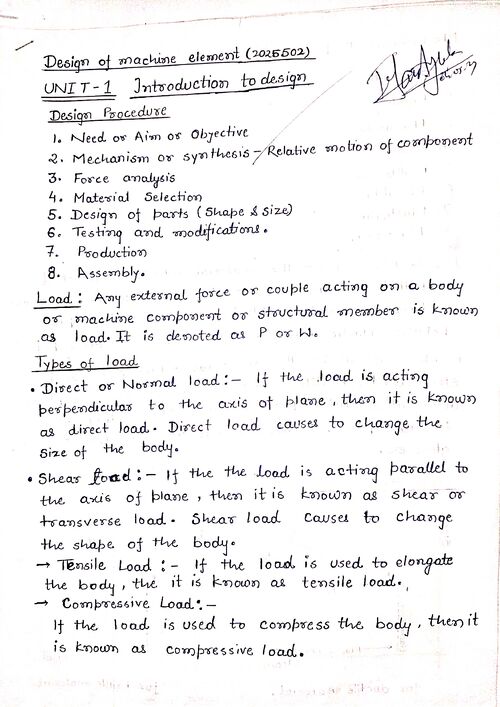 Design of machine element (2025502)
UNIT-1 Introduction to design
Design Procedure
1. Need or Aim or Objective
2. Mechanism or synthesis - Relative motion of component
3. Force analysis
4. Material Selection
5. Design of parts (Shape & Size)
6. Testing and modifications.
7. Production
8. Assembly.
Load: Any external force or couple acting on a body
or machine component or structural member is known
as load. It is denoted as P or W.
Types of load
• Direct or Normal load:- If the load is acting
perpendicular to the axis of plane, then it is known
as direct load. Direct load causes to change the
size of the body.
• Shear load:- If the the load is acting parallel to
the axis of plane, then it is known as shear or
transverse load. Shear load causes to change
the shape of the body.
→ Tensile Load:- If the load is used to elongate
the body, the it is known as tensile load.
→ Compressive Load:-
If the load is used to compress the body, then it
is known as compressive load.